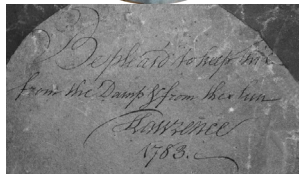 Be pleas'd to keep this
from the Damp & from the sun
T Lawrence
1783.